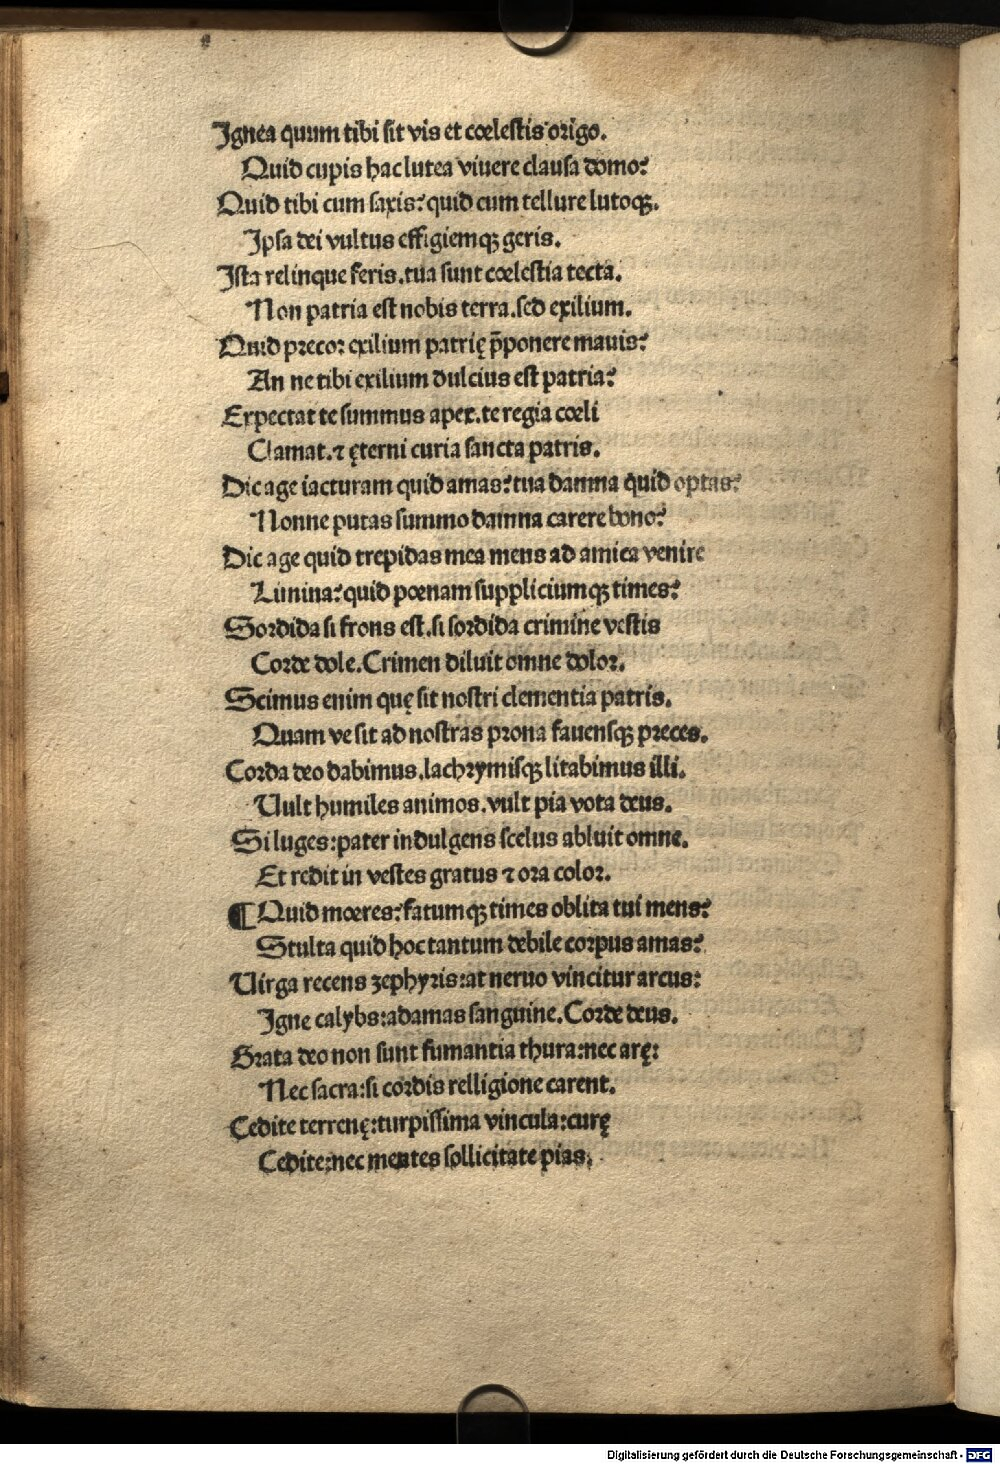 Ignea quum tibi sit vis et cœlestis origo.
Quid cupis hac lutea viuere clausa domo?
Quid tibi cum saxis? quid cum tellure lutoqꝫ.
Ipsa dei vultus effigiemqꝫ geris.
Ista relinque feris. tua sunt cœlestia tecta.
Non patria est nobis terra. sed exilium.
Quid precor exilium patrię p̄ponere mauis?
An ne tibi exilium dulcius est patria?
Expectat te summus apex. te regia cœli
Clamat. ⁊ ęterni curia sancta patris.
Dic age iacturam quid amas? tua damna quid optas?
Nonne putas summo damna carere bono?
Dic age quid trepidas mea mens ad amica venire
Limina? quid pœnam suppliciumqꝫ times?
Sordida si frons est. si sordida crimine vestis
Corde dole. Crimen diluit omne dolor.
Scimus enim quę sit nostri clementia patris.
Quam ve sit ad nostras prona fauensqꝫ preces.
Corda deo dabimus. lachrymisqꝫ litabimus illi.
Uult humiles animos. vult pia vota deus.
Si luges: pater indulgens scelus abluit omne.
Et redit in vestes gratus ⁊ ora color.
¶ Quid mœres? fatumqꝫ times oblita tui mens?
Stulta quid hoc tantum debile corpus amas?
Uirga recens zephyris: at neruo vincitur arcus:
Igne calybs: adamas sanguine. Corde deus.
Grata deo non sunt fumantia thura: nec arę:
Nec sacra: si cordis relligione carent.
Cedite terrenę: turpissima vincula: curę
Cedite: nec mentes sollicitate pias.
Digitalisierung gefördert durch die Deutsche Forschungsgemeinschaft - DFG